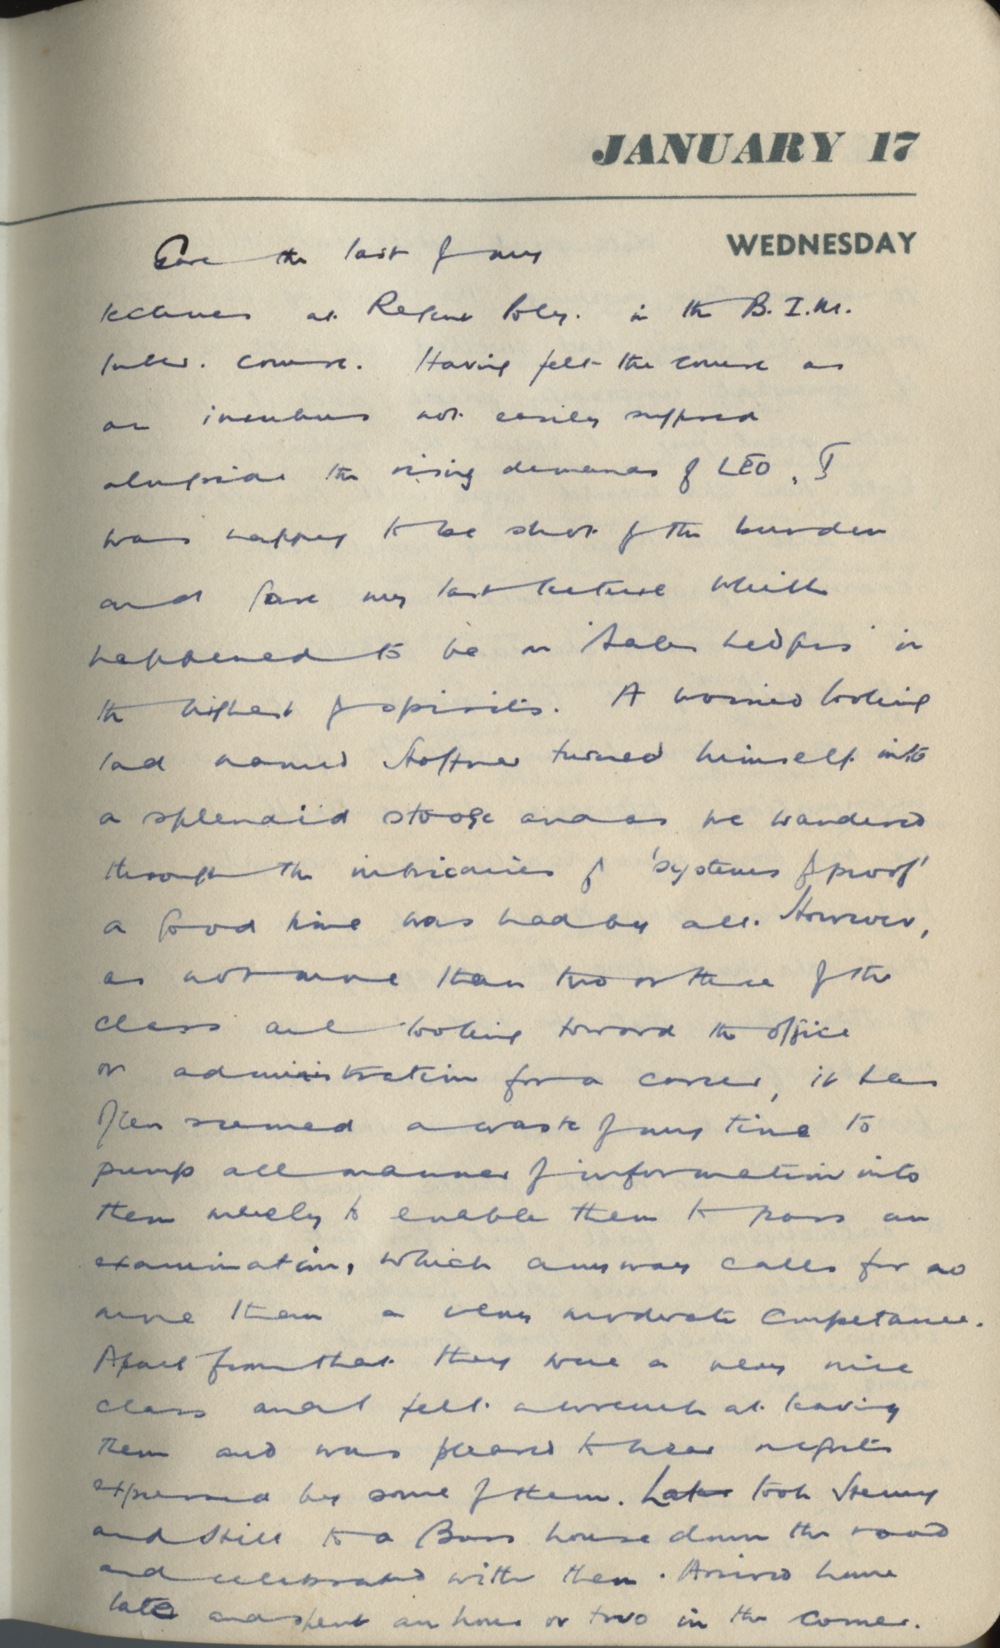 JANUARY 17
WEDNESDAY
Gave the last of my
lectures at Regent Poly. in the B.I.M.
Inter. course. Having felt the course as
an incubus not easily supported
alongside the rising demands of LEO, I
was happy to be shot of the burden
and gave my last lecture which
happened to be on 'Sales ledgers' in
the highest of spirits. A worried looking
lad named turned himself into
a splendid stooge and as we wandered
through the intricacies of 'systems of proof'
a good time was had by all. However,
as not more than two or three of the
class are looking toward the office
or administration for a career, it has
often seemed a waste of my time to
pump all manner of information into
them merely to enable them to pass an
examination, which anyway calls for no
more than a very moderate competance.
Apart from that they were a very nice
class and I felt a wrench at leaving
them and was pleased to hear regrets
expressed by some of them. Later took
and to a Bass house down the road
and celebrated with them. Arrived home
late and spent an hour or two in the corner.